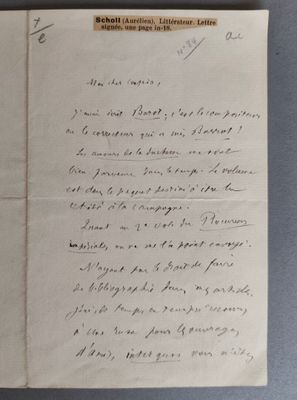 Scholl (Aurélien), Littérateur. Lettre
signée, une page in-18.
Mon cher confrère,
J'avais écrit Barot; c'est le compositeur
ou le correcteur qui a mis Barrot!
Les amours de la duchesse me sont
bien parvenus dans le temps. Le volume
est dans le paquet destiné à être lu
cet été à la campagne.
Quant au 2e vol. du
impériales, on ne me l'a point envoyé.
N'ayant pas le droit de faire
de bibliographie dans mes articles,
j'ai de temps en temps recours
à une ruse pour les ouvrages
d'amis, inter quos vous n'êtes